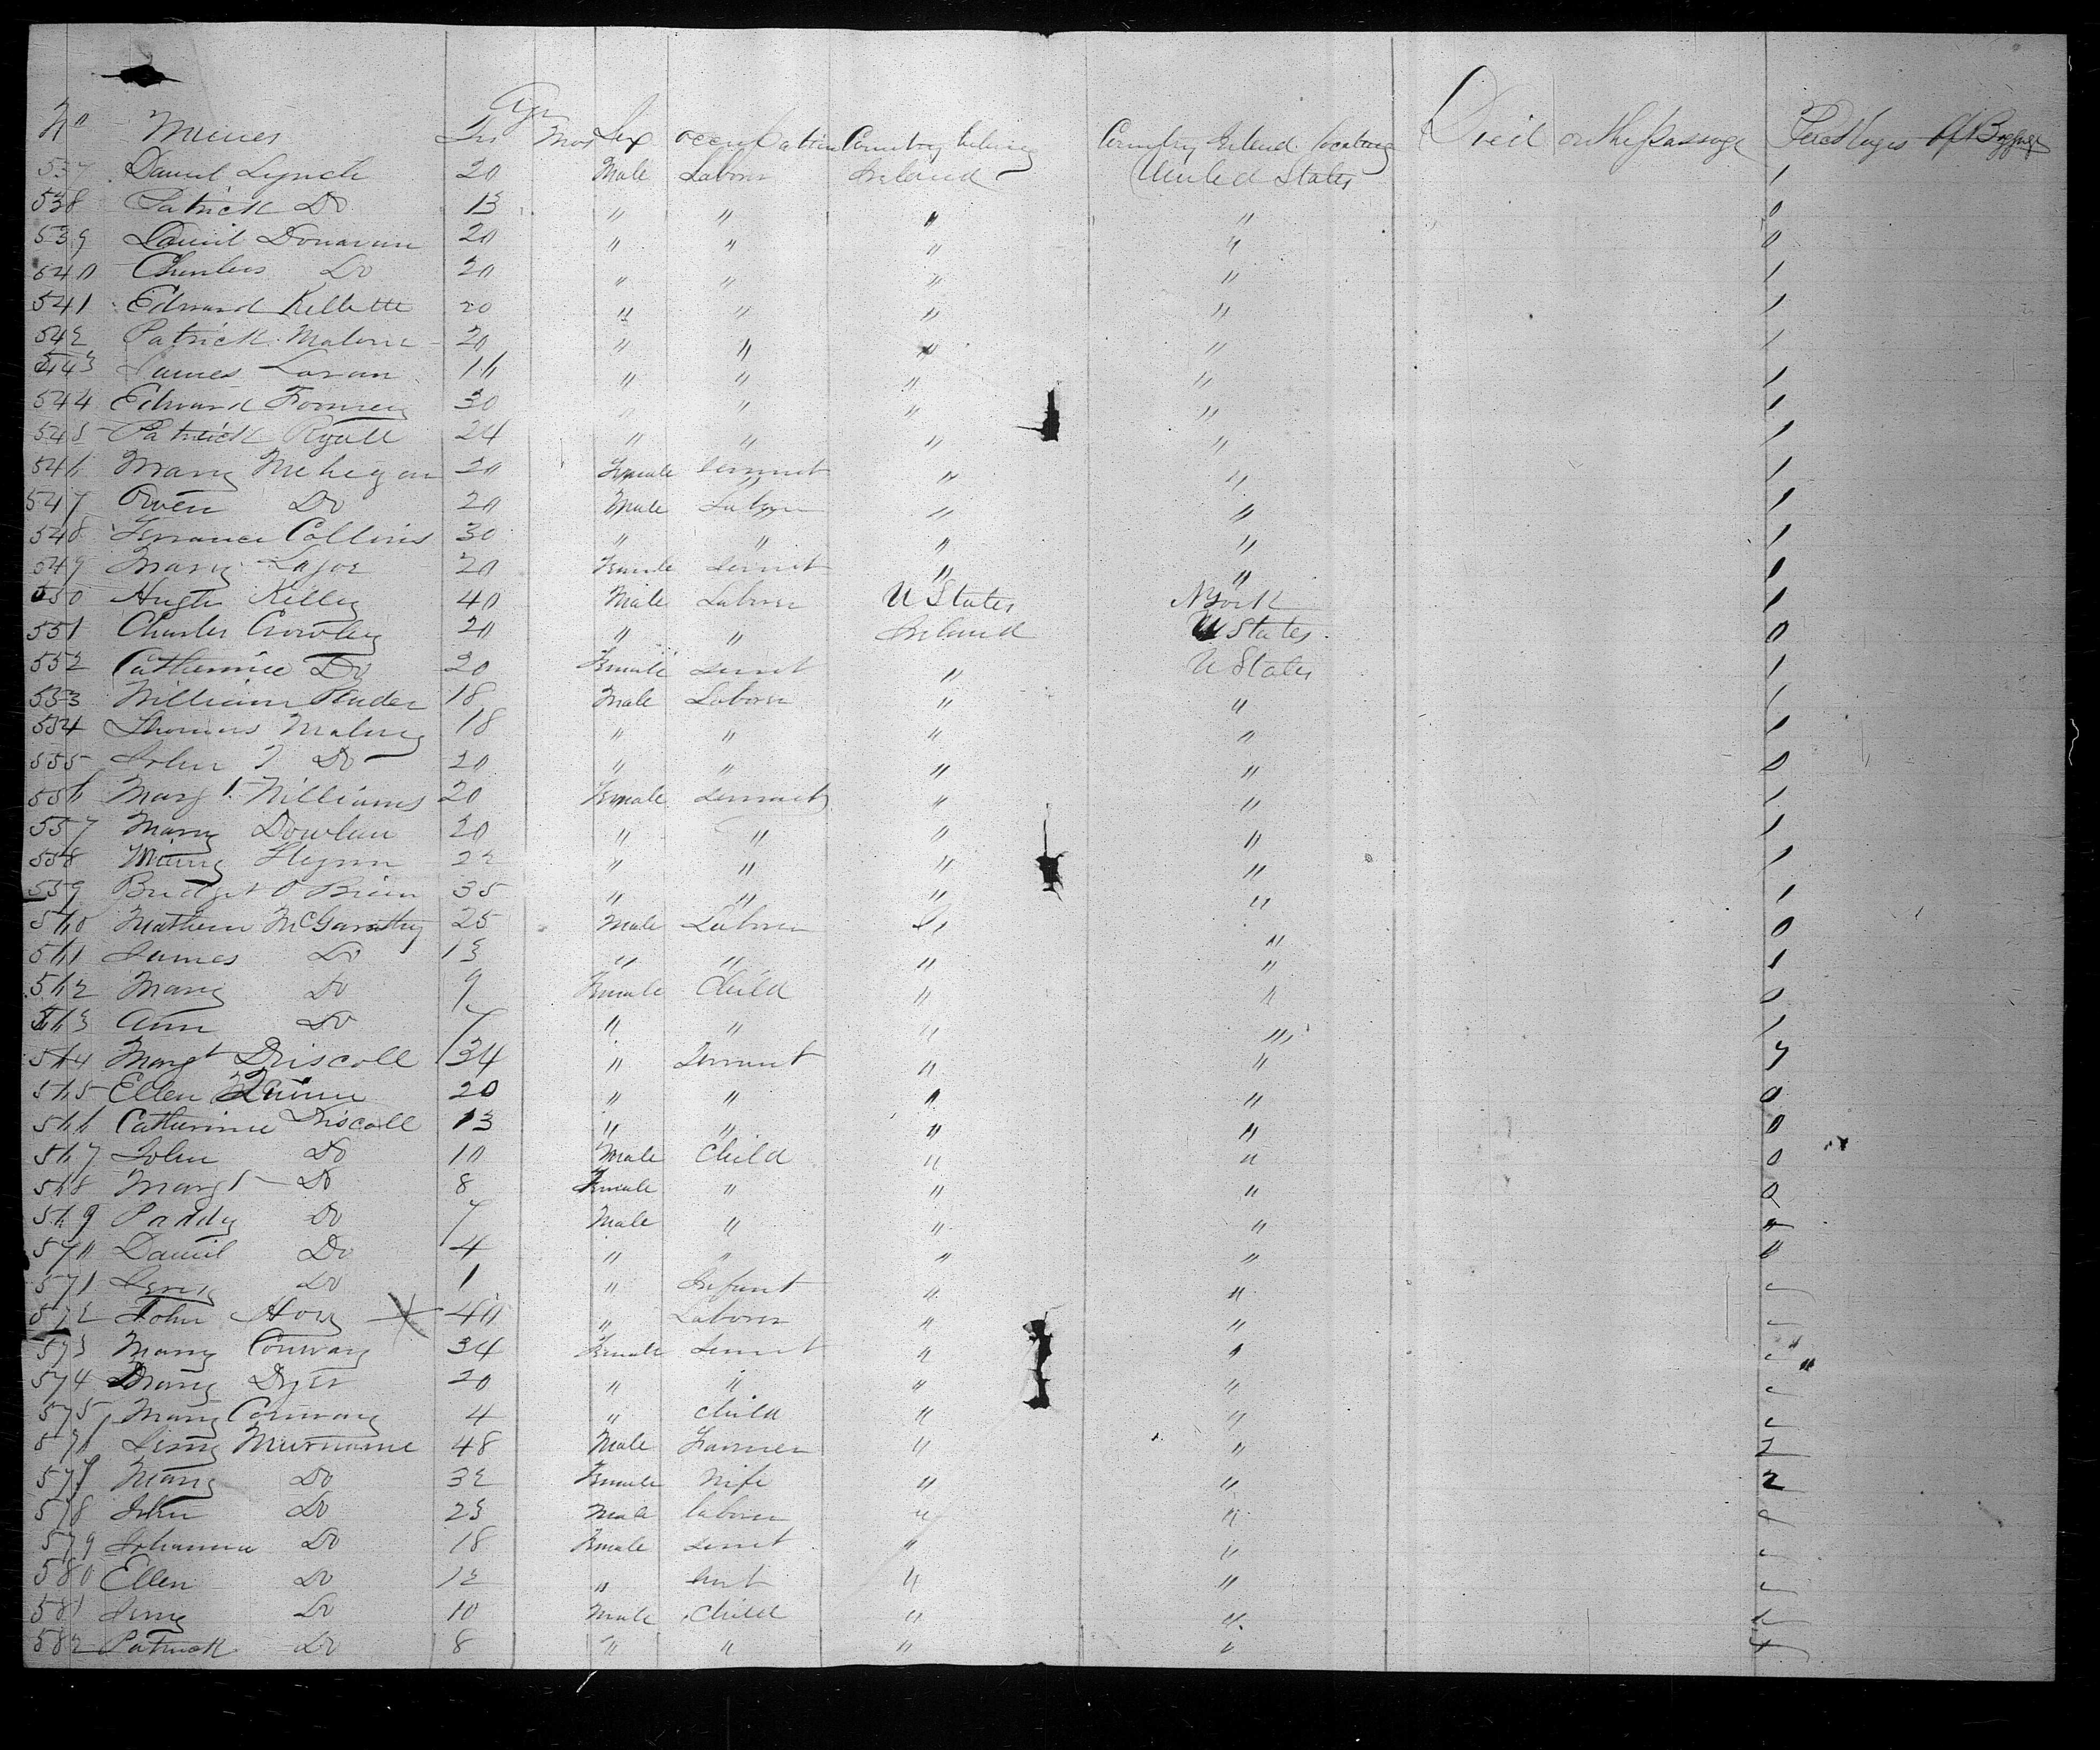 Age
No Names Yrs Mos Sex occupation Country belong Country Intend locating Died on the passage Packages of Baggage
537 Daniel Lynch 20 Male Laborer Ireland United States 1
538 Patrick Do 13 " " " " 0
539 Daniel Donavan 20 " " " " 0
540 Do 20 " " " " 1
541 Edward Kellette 20 " " " " 1
542 Patrick Malone 20 " " " " 1
543 James 16 " " " " 1
544 Edward 30 " " " " 1
545 Patrick Ryall 24 " " " " 1
546 Mary Mehegan 20 Female Servant " " 1
547 Owen Do 20 Male Laborer " " 1
548 Terrance Collins 30 " " " " 1
549 Mary 20 Female Servnt " " 0
550 Hugh Killey 40 Male Laborer U States NYork 1
551 Charles Crowley 20 " " Ireland U States 0
552 Catherine Do 20 Female Servnt " U States 1
553 William 18 Male Laborer " " 1
554 Thomas Malony 18 " " " " 1
555 John Do 20 " " " " 0
556 Margt Williams 20 Female Servant " " 1
557 Mary Dowlan 20 " " " " 1
558 Flynn 22 " " " " 1
559 Bridget O Brien 35 " " " " 1
560 Mathew McGarathy 25 Male Laborer " " 0
561 James Do 13 " " " " 1
562 Mary Do 9 Female Child " " 0
563 Ann Do 7 " " " " 1
564 Margt Driscoll 34 " Servant " "
565 Ellen Quinn 20 " " " " 0
566 Catherine Driscoll 13 " " " " 0
567 John Do 10 Male Child " " 0
568 Margt Do 8 Female " " " 0
569 Paddy Do 7 Male " " " "
570 Daniel Do 4 " " " " "
571 Jerry Do 1 " Infant " "
572 John Hoy 40 " Laborer " "
573 Mary Conway 34 Female Servnt " "
574 Mary Dyer 20 " " " "
575 Mary Conway 4 " child " "
576 Murnane 48 Male Farmer " " 2
577 Mary Do 32 Female Wife " " 2
578 John Do 23 Male laborer " "
579 Johanna Do 18 Female Servnt " "
580 Ellen Do 12 " " "
581 Do 10 Male Child " "
582 Patrick Do 8 " " " "